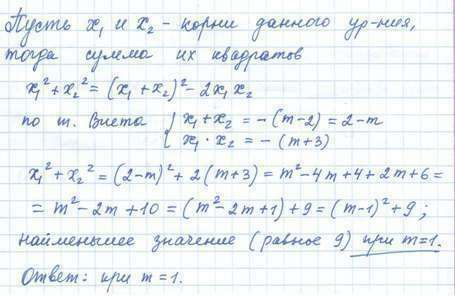 Пусть x₁ и x₂ - корни данного ур-ния,
тогда сумма их квадратов
x₁² + x₂² = (x₁ + x₂)² - 2x₁x₂
по т. Виета { x₁ + x₂ = -(m-2) = 2-m
x₁ · x₂ = -(m+3)
x₁² + x₂² = (2-m)² + 2(m+3) = m² - 4m + 4 + 2m + 6 =
= m² - 2m + 10 = (m² - 2m + 1) + 9 = (m-1)² + 9;
наименьшее значение (равное 9) при m=1.
Ответ: при m = 1.